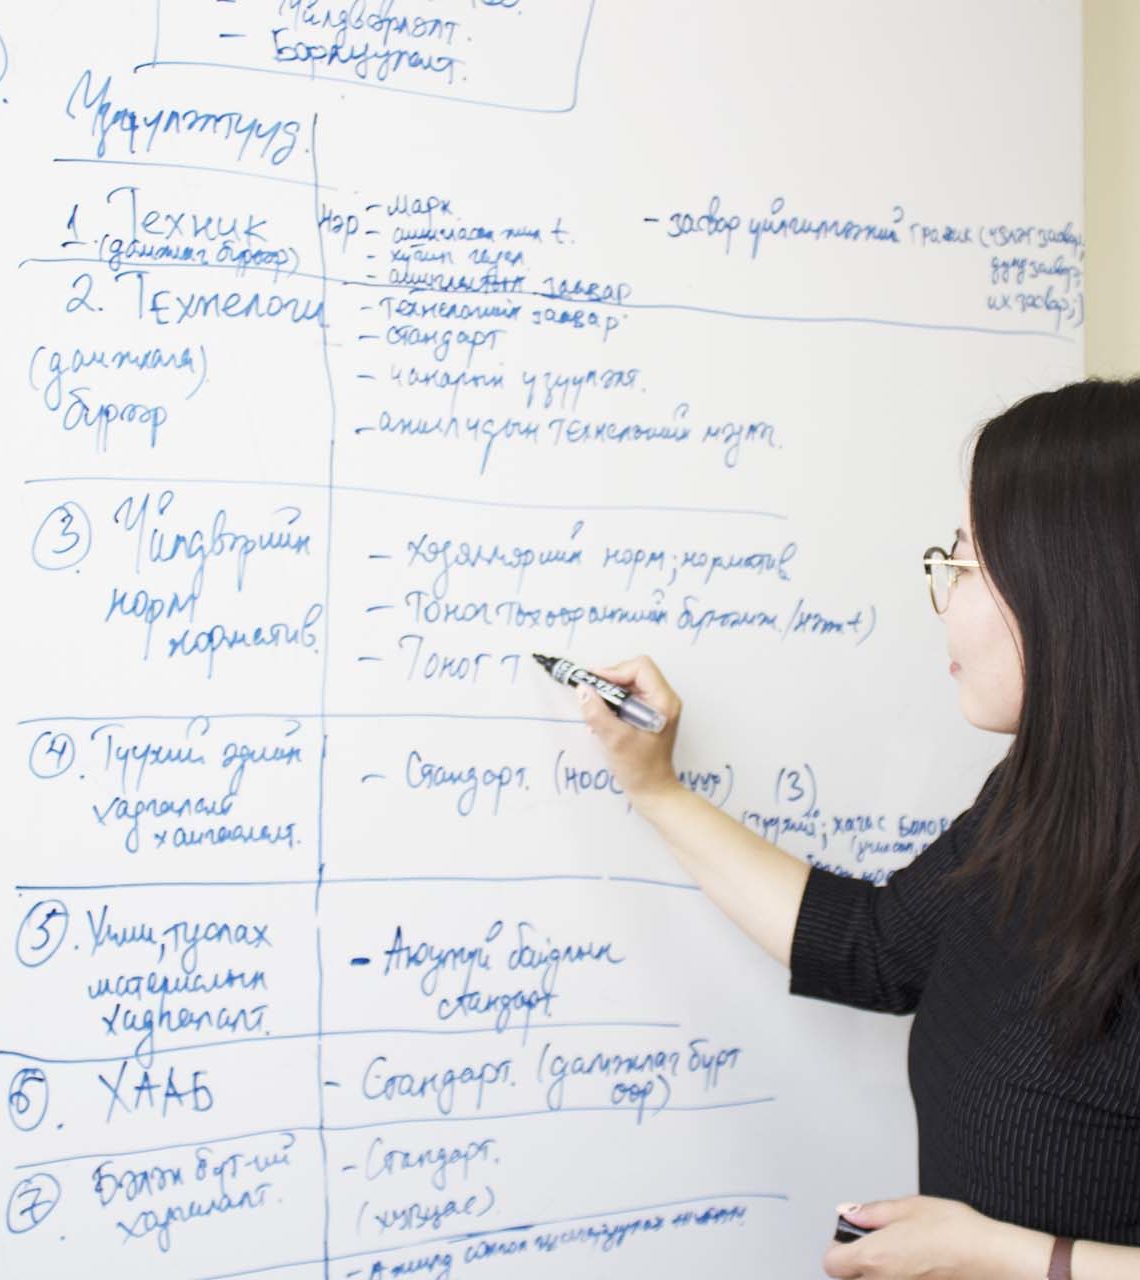 - Үйлдвэрлэлт.
- Борлуулалт.
Үзүүлэлтүүд.
1. Техник
(дамжлаг бүрээр)
нэр
- Марк
- ашигласан жил t.
- хүчин чадал
- ашиглалтын заавар
- засвар үйлчилгээний график (үзлэг засвар,
дунд засвар,
их засвар,)
2. Технологи
(дамжлага)
бүрээр
- технологийн заавар
- стандарт
- чанарын үзүүлэлт.
- ажилчдын технологийн мэдлэг.
3. Үйлдвэрийн
норм
норматив.
- Хөдөлмөрийн норм; норматив
- Тоног төхөөрөмжийн бүтээмж /нэгж t)
- Тоног т
4. Түүхий эдийн
хадгалалт
хангамж.
- Стандарт. (3)
(түүхий; хагас
5. Хими, туслах
материалын
хадгалалт.
- Аюулгүй байдлын
стандарт
6. ХААБ
- Стандарт. (дамжлаг бүрт
өөр)
7 Бэлэн бүт-ний
хадгалалт.
- Стандарт.
(хувцас)
- Ажилд